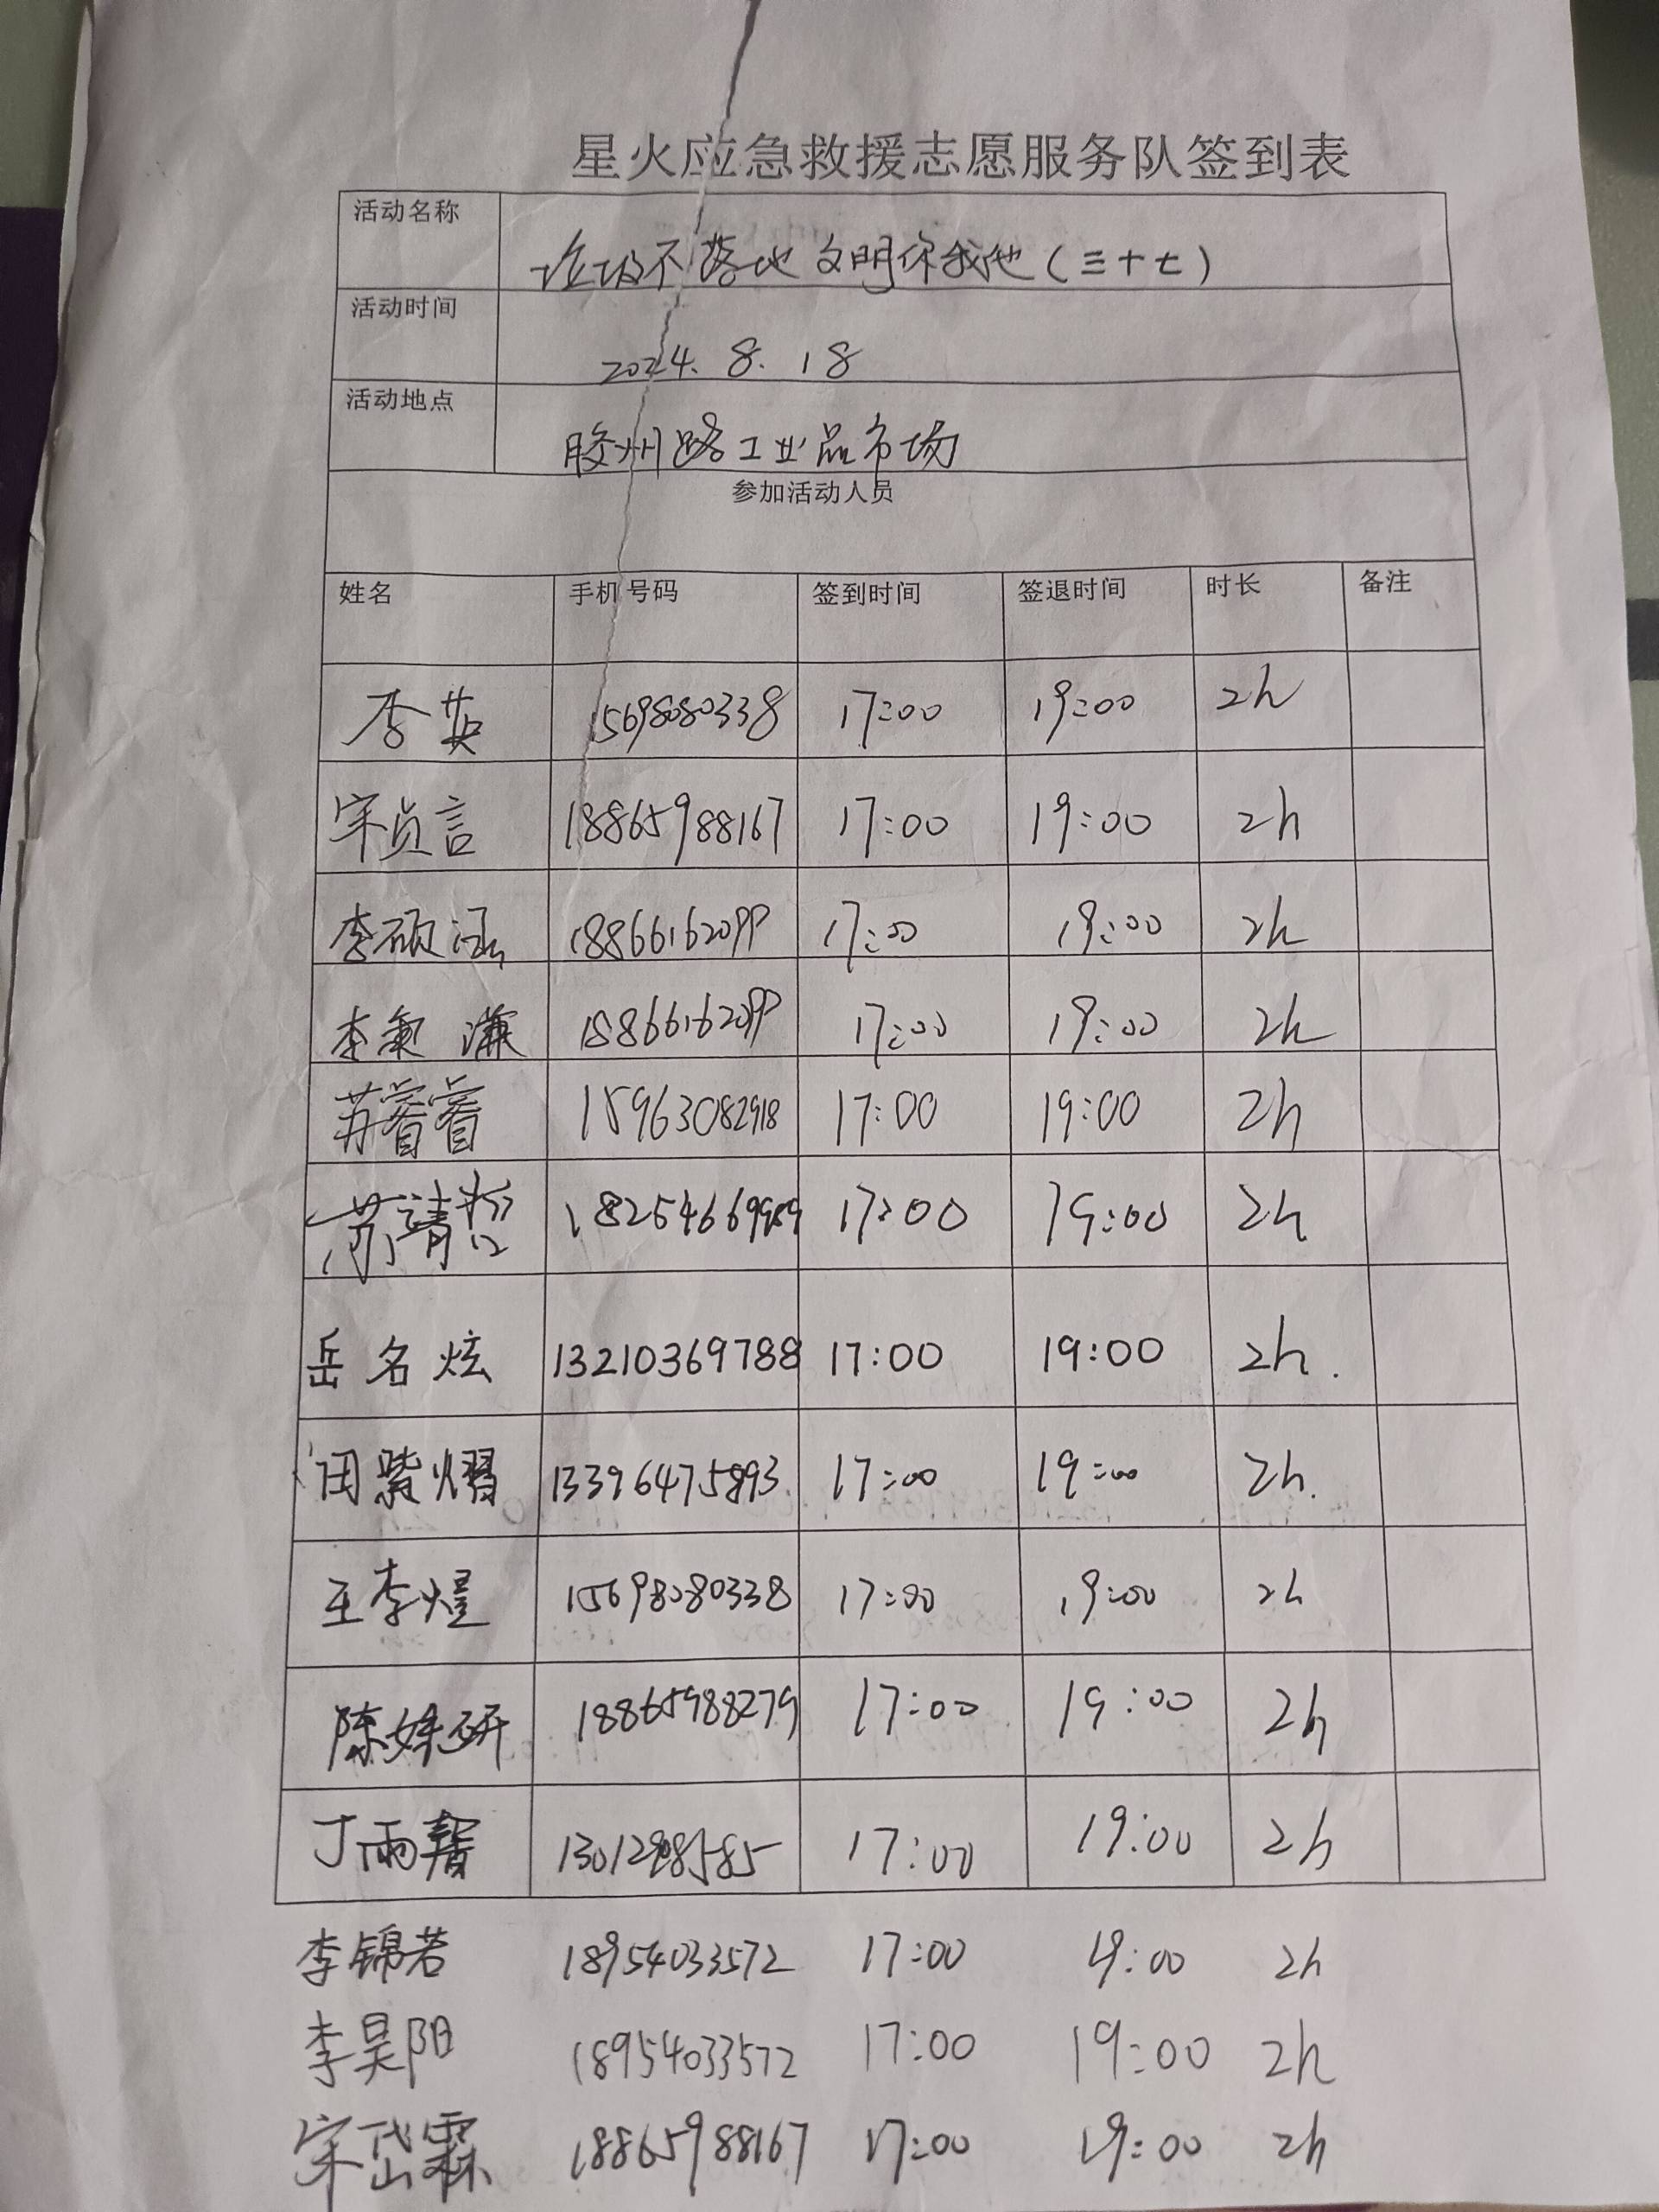 星火应急救援志愿服务队签到表
活动名称 垃圾不落地 文明你我他(三十七)
活动时间 2024.8.18
活动地点 胶州路工业品市场
参加活动人员
姓名 手机号码 签到时间 签退时间 时长 备注
李英 15698080338 17:00 19:00 2h
宋贞言 18865988167 17:00 19:00 2h
李硕涵 18866162099 17:00 19:00 2h
李秉谦 18866162099 17:00 19:00 2h
苏睿睿 15963082918 17:00 19:00 2h
苏靖哲 18254669989 17:00 19:00 2h
岳名炫 13210369788 17:00 19:00 2h.
田紫熠 13396475893 17:00 19:00 2h.
王李煜 15698080338 17:00 19:00 2h
陈姝研 18865988279 17:00 19:00 2h
丁雨馨 17:00 19:00 2h
李锦若 18954033572 17:00 19:00 2h
李昊阳 18954033572 17:00 19:00 2h
宋岱霖 18865988167 17:00 19:00 2h